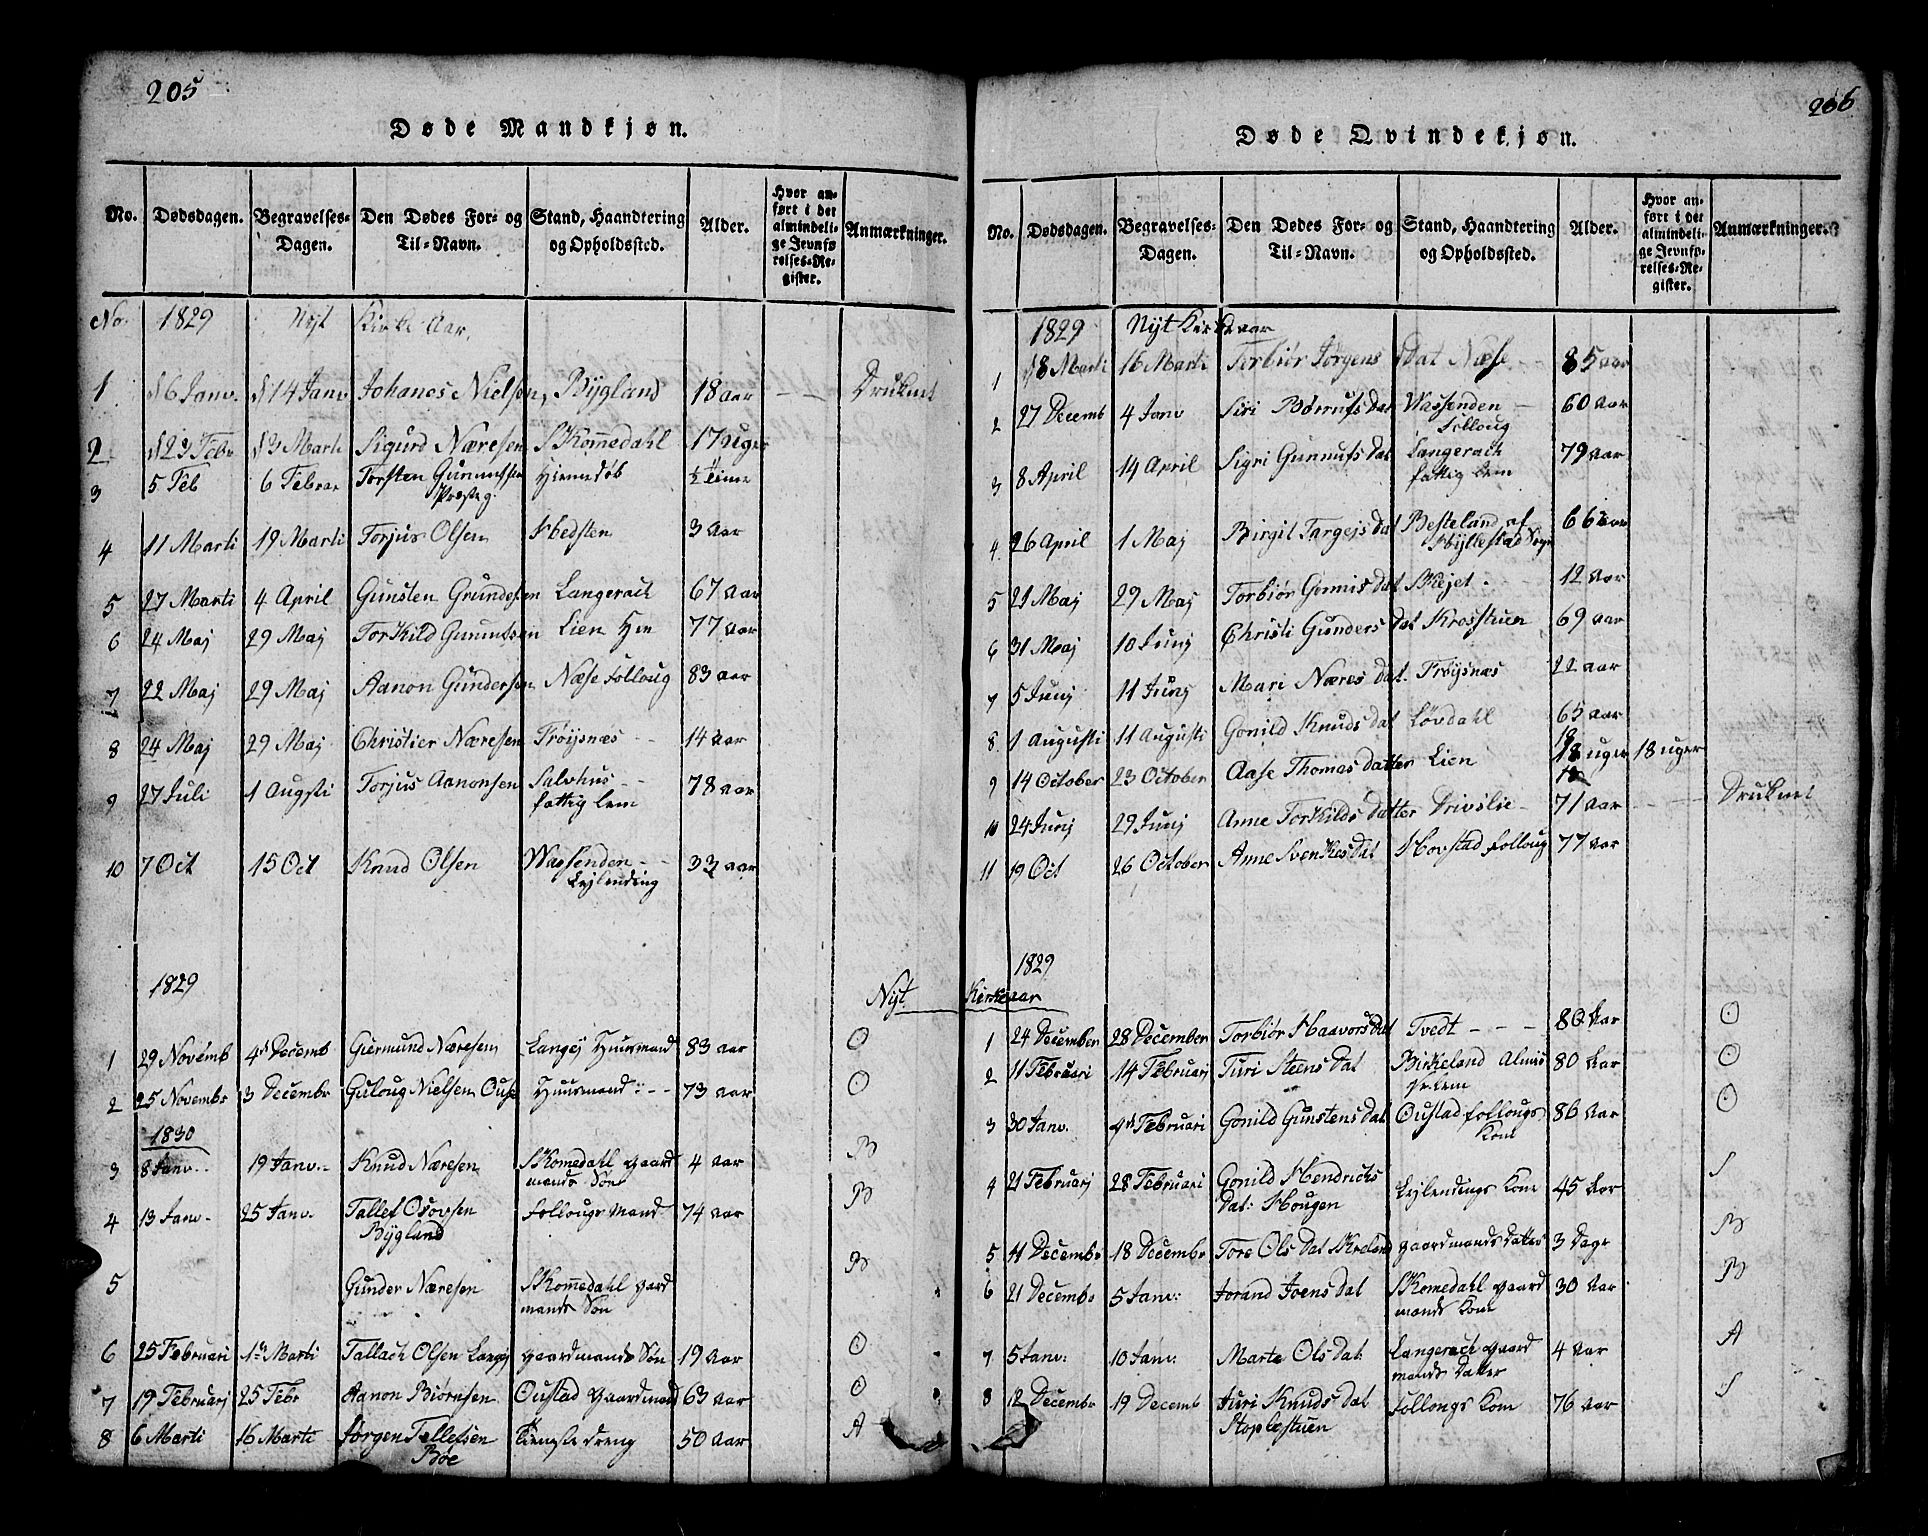 205
Døde Mandkjøn.
No. Dødsdagen. Begravelses-Dagen. Den Dødes For- og Til-Navn. Stand, Haandtering og Opholdssted. Alder. Hvor anført i det almindelige Jevnførelses-Register. Anmærkninger.
No. 1829 Nyt Kirke Aar.
1 d 6 Janv. d 14 Janv Johanes Nielsen, Bygland 18 aar - - Druknet
2 d 23 Febr d 3 Marti Sigurd Næresen Skomedahl 17 Uger
3 5 Feb 6 Febr Torsten Gunnufsen Hiemedøb ½ Time
Præsteg.
4 11 Marti 19 Marti Torjus Olsen 3 Aar
5 27 Marti 4 April Gunsten Grundesen Langerach 67 Aar
6 24 Maj 29 Maj TorKild Gunuufsen Lien 77 Aar
7 22 Maj 29 Maj Aanon Gundersen Næse Folloug 83 aar
8 24 Maj 29 Maj Christier Næresen Frøysnæs - - 14 aar
9 27 Juli 1 Augsti Torjus Aanonsen Salvhus - - 78 aar
fattig lem
10 7 Oct 15 Oct Knud Olsen Wassenden - - 33 aar
Lejlending
1829 Nyt
1 29 Novemb 4d Decemb Giermund Næresen Langej Huusmand 83 aar O
2 25 Novembr 3 Decembr Guloug Nielsen Ouse Huusmand - - 73 aar O
1830
3 8 Janv. 19 Janv. Knud Næresen Skomedahl gaard 4 aar B
mands Søn
4 13 Janv. 25 Janv. Tallef Osovsen Follougs Mand 74 aar B
Bygland
5 Gunder Næresen Skomedahl gard B
mands Søn
6 25 Februari 1d Marti Tallach Olsen Langej gaardmands Søn 19 Aar O
7 19 Februarj 25 Febr Aanon Biørnsen Oustad gaardmand 63 aar O
8 6 Marti 16 Marti Jørgen Tellefsen Tieneste dreng 50 Aar A
Bøe
206
Døde Qvindekjøn.
No. Dødsdagen. Begravelses-Dagen. Den Dødes For- og Til-Navn. Stand, Haandtering og Opholdssted. Alder. Hvor anført i det almindelige Jevnførelses-Register. Anmærkninger.
1829 Nyt Kirke aar
1 d 8 Marti 16 Marti Torbiør Jørgens Dat Næse - - 85 aar
2 27 Decemb 4 Janv Siri Børrufs Dat Wassenden - 60 Aar
Folloug
3 8 April 14 April Sigri Gunnufs Dat Langerach 79 aar
fattig lem
4 26 April 1 Maj Birgit Targejs Dat Besteland af 66 aar
Hyllestad Sogn
5 21 Maj 29 Maj Torbiør Germis Dat Skejet - 12 Aar
6 31 Maj 10 Junj Christi Gunders Dat Krosstuen 69 Aar
7 5 Junj 11 Junj Mari Næres Dat Frøysnæs 22 aar
8 1 Augusti 11 Augusti Gonild Knuds Dat Løvdahl 65 aar
9 14 October 23 October Aase Thomas datter Lien 18 uger 18 uger
10 24 Junj 29 Junj Anne TorKilds Datter Drivslie - 71 Aar - - - Druknet
11 19 Oct 26 October Anne Svenkes Dat Hovstad folloug 77 Aar
1829
Kirkeaar
1 24 December 28 December Torbiør Haavors Dat Tvedt - - - 80 Aar O
2 11 Februari 14 Februarj Turi Steens Dat Birkeland Almis 80 Aar O
se lem
3 30 Janv. 9d Februari Gonild Gunstens Dat Oustad follougs 86 Aar O
Kone
4 21 Februarj 28 Februari Gonild Hendrichs Lejlendings Kone 45 Aar S
Dat: Hougen
5 11 Decembr 18 Decembr Tore Ols Dat Skreland gaardmands Datter 3 Dage B
6 21 Decembr 5 Janv: Jorand Joens Dat Skomedahl gaard 30 Aar B
mands Kone
7 5 Janv: 10 Janv: Marte Ols Dat: Langerach gaard 4 Aar A
mands Datter
8 12 Decembr 19 Decemb Turi Knuds Dat Follougs Kone 76 aar S
Stoplestuen